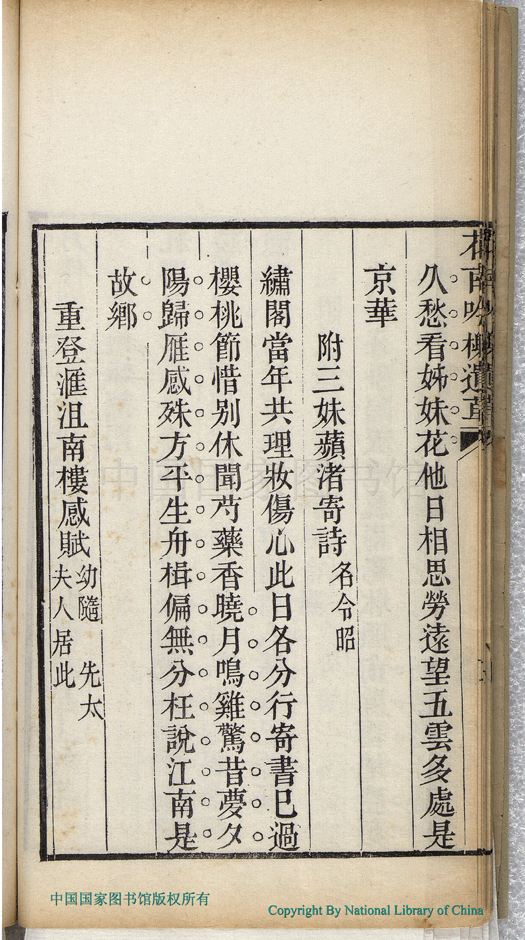 久愁看姊妹花他日相思勞遠望五雲多處是
京華
附三妹蘋渚寄詩名令昭
繡閣當年共理妝傷心此日各分行寄書已過
櫻桃節惜別休聞芍藥香曉月鳴雞驚昔夢夕
陽歸雁感殊方平生舟楫偏無分枉說江南是
故鄉
重登滙沮南樓感賦幼隨 先太
夫人居此
中国国家图书馆
中国国家图书馆版权所有
Copyright By National Library of China